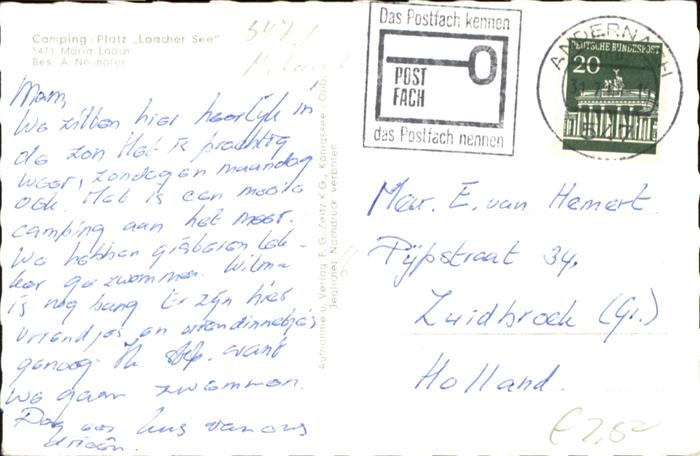 Camping-Platz „Laacher See"
5471 Maria Laach
Bes. A. Neuhöfer
5471
Mam,
We zitten hier heerlijk in
de zon Het is prachtig
weer, zondag en maandag
ook. Het is een mooie
camping aan het meer.
We hebben gisteren lek-
ker gezwommen. Wilma
is nog bang Er zijn hier
vriendjes en vriendinnetjes
genoeg Ik stop, want
we gaan zwemmen.
Dag een kus van ons
drieën.
Aufnahme u. Verlag F. G. Zeitz K G., Königssee / Obb.
Jeglicher Nachdruck verboten
Das Postfach kennen
POST
FACH
das Postfach nennen
ANDERNACH
DEUTSCHE BUNDESPOST
20
Mevr. E. van Hemert
Pijpstraat 34,
Zuidbroek (Gr.)
Holland.